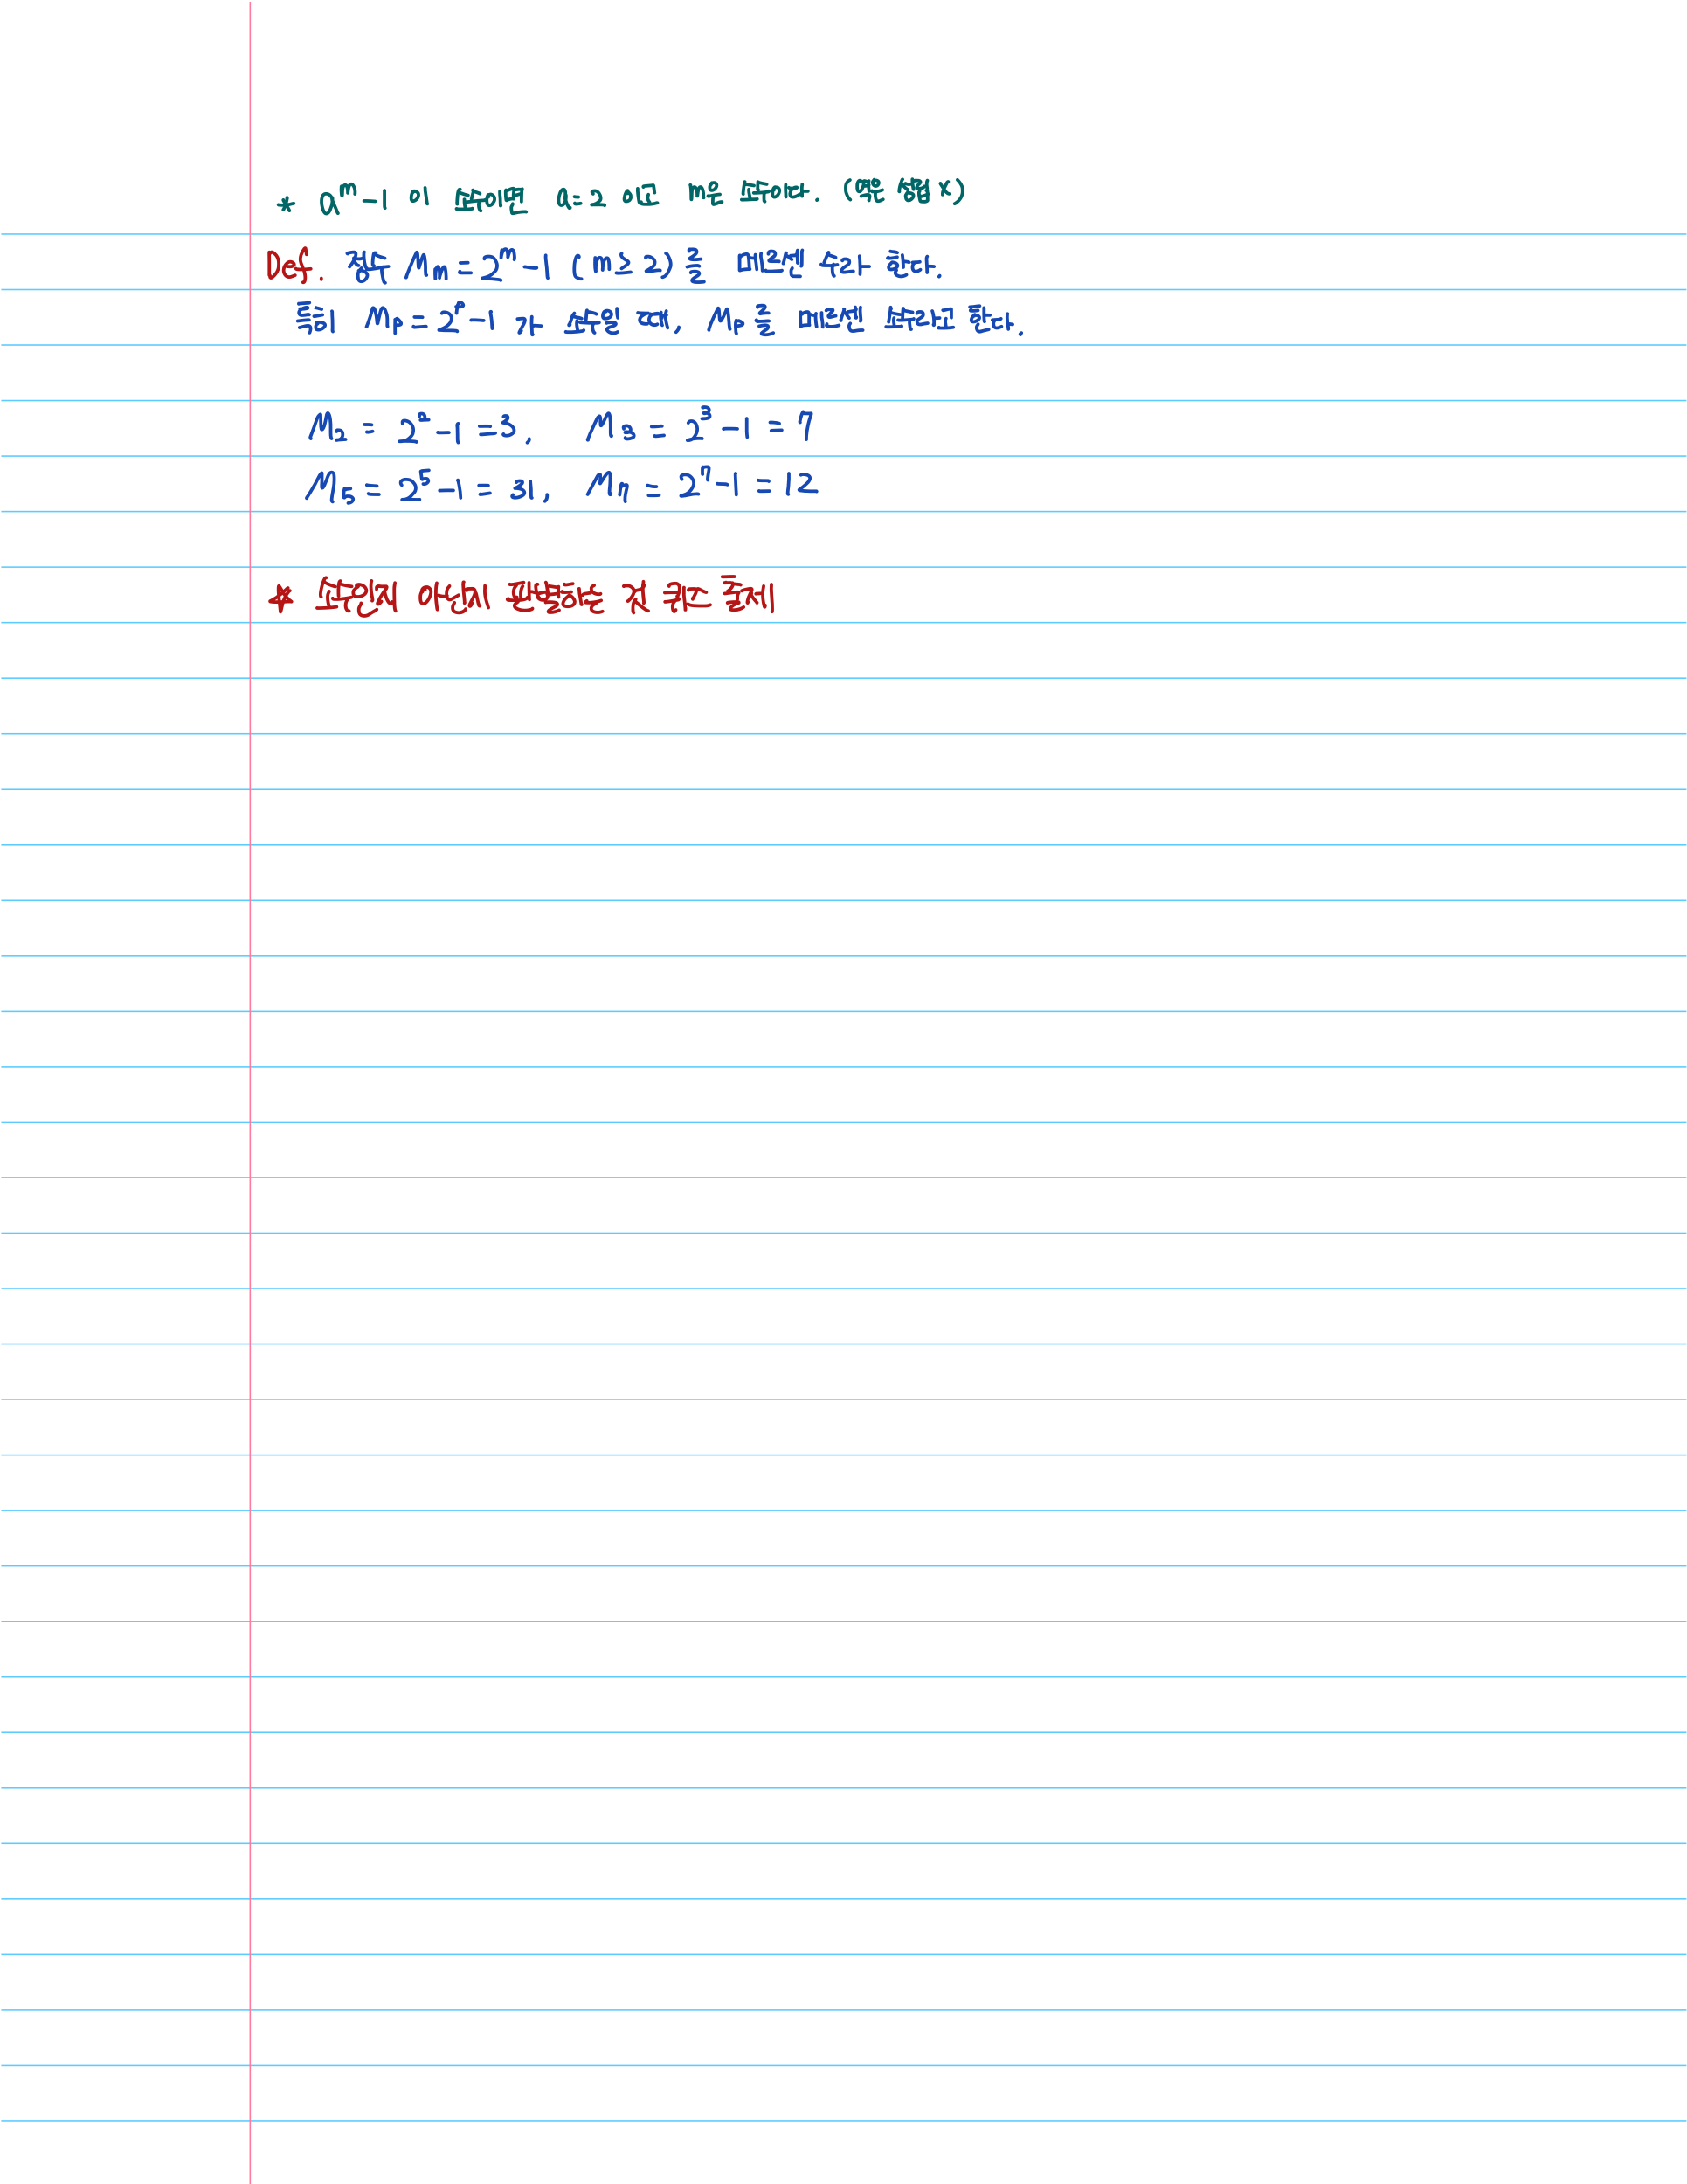 * a^m-1 이 소수이면 a=2 이고 m은 소수이다. (역은 성립 X)
Def. 정수 Mm=2^m-1 (m≥2)를 메르센 수라 한다.
특히 Mp=2^p-1 가 소수일 때, Mp를 메르센 소수라고 한다.
M₂ = 2²-1=3, M₃ = 2³-1=7
M₅ = 2⁵-1= 31, M₇ = 2⁷-1 = 12
* 소수인지 아닌지 판별하는 것 큰 문제